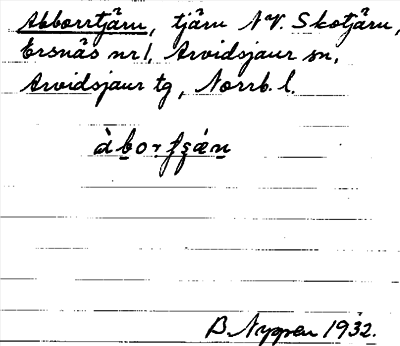 Abborrtjärn, tjärn NV. Skotjärn,
Ersnäs nr 1, Arvidsjaur sn,
Arvidsjaur tg, Norrb. l.
B. Nygren 1932.